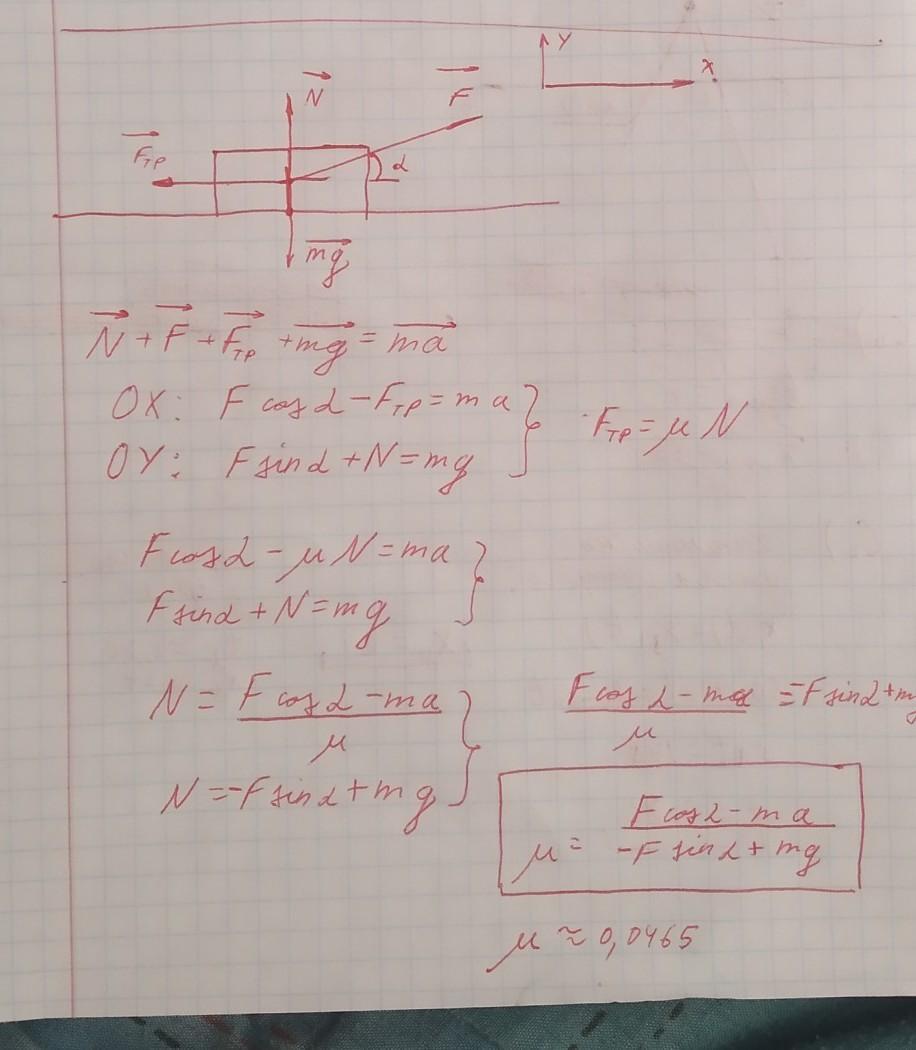 Y
X
N
F
Fтр
α
mg
N + F + Fтр + mg = ma
OX: F cos α − Fтр = ma
Fтр = μ N
OY: F sin α + N = mg
F cos α − μ N = ma
F sin α + N = mg
N = (F cos α − ma) / μ
(F cos α − ma) / μ = −F sin α + mg
N = −F sin α + mg
μ = (F cos α − ma) / (−F sin α + mg)
μ ≈ 0,0465